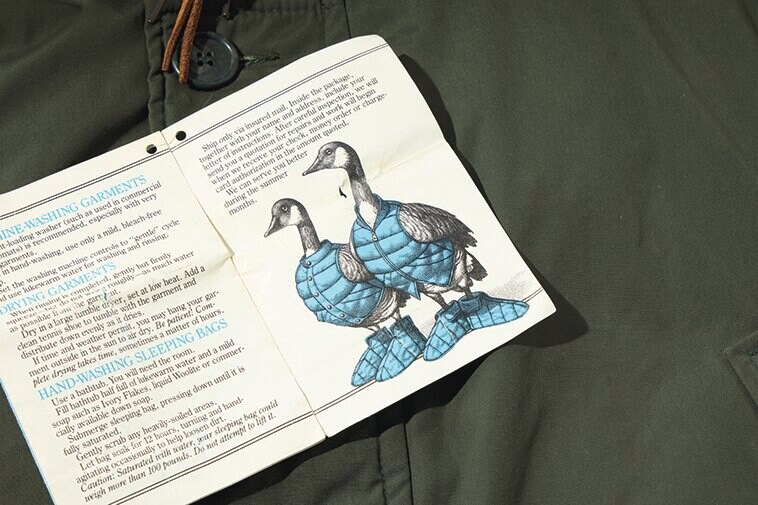 INE-WASHING GARMENTS
nt-loading washer (such as used in commercial
omats) is recommended, especially with very
garments.
in hand-washing, use only a mild, bleach-free
Set the washing machine controls to "gentle" cycle
nd use lukewarm water for washing and rinsing.
DRYING GARMENTS
When rinsing is completed, gently but firmly
as much water
as possible from the garment.
Dry in a large tumble dryer, set at low heat. Add a
clean tennis shoe to tumble with the garment and
distribute down evenly as it dries.
If time and weather permit, you may hang your gar-
ment outside in the sun to air dry. Be patient! Com-
plete drying takes time, sometimes a matter of hours.
HAND-WASHING SLEEPING BAGS
Use a bathtub. You will need the room.
Fill bathtub half full of lukewarm water and a mild
soap such as Ivory Flakes, liquid Woolite or commer-
cially available down soap.
Submerge sleeping bag, pressing down until it is
fully saturated.
Gently scrub any heavily-soiled areas.
Let bag soak for 12 hours, turning and hand-
agitating occasionally to help loosen dirt.
Caution: Saturated with water, your sleeping bag could
weigh more than 100 pounds. Do not attempt to lift it.
Ship only via insured mail. Inside the package,
together with your name and address, include your
letter of instructions. After careful inspection, we will
send you a quotation for repairs and work will begin
when we receive your check, money order or charge-
card authorization in the amount quoted.
We can serve you better
during the summer
months.